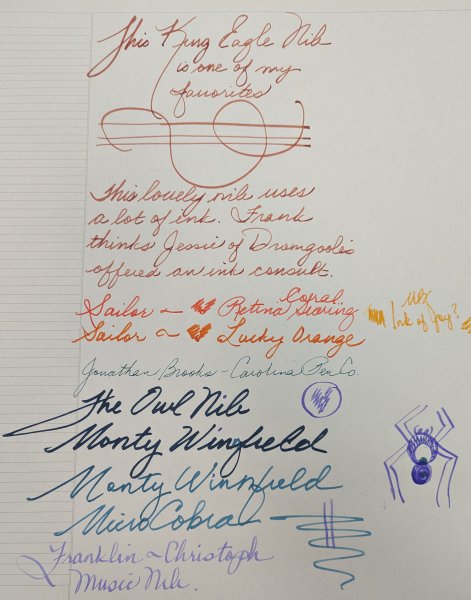 This King Eagle Nib
is one of my
favorites
This lovely nib uses
a lot of ink. Frank
thinks Jessie of Dromgoole's
offered an ink consult.
Coral
Sailor ~ Retina Searing
Sailor ~ Lucky Orange
Ink of Joy?
Jonathan Brooks - Carolina Pen Co.
The Owl Nib
Monty Winnfield
Monty Winnfield
Micro Cobra
Franklin ~ Christoph
Music Nib.